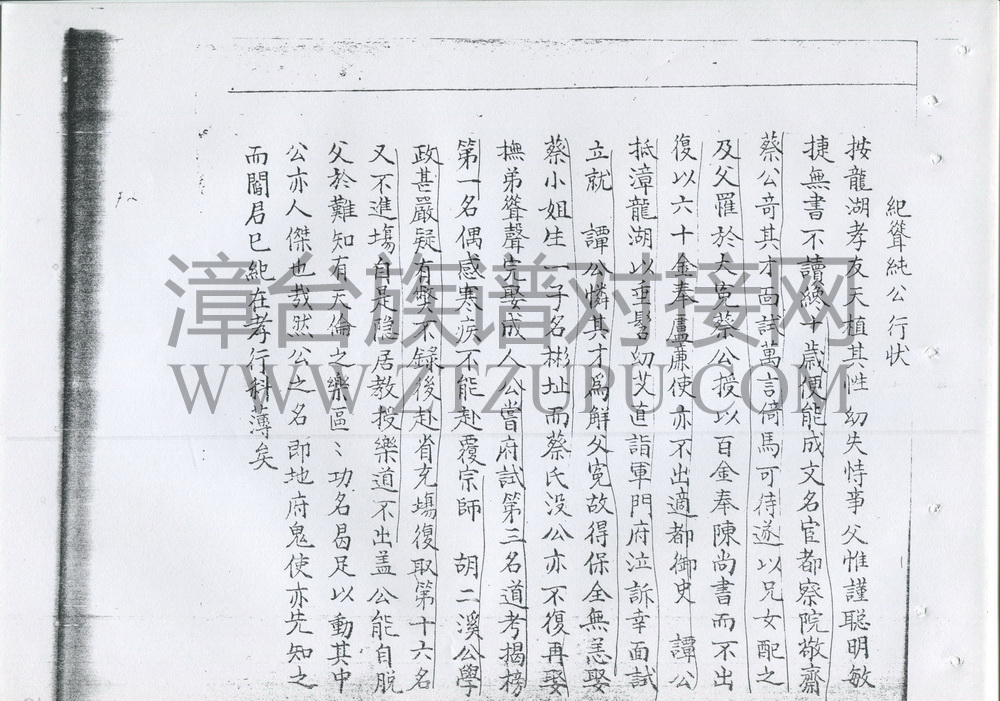 紀聳純公行状
按龍湖孝友天植其性幼失恃事父惟謹聰明敏
捷無書不讀纔十歲便能成文名宦都察院敬齋
蔡公奇其才面試萬言倚馬可待遂以兄女配之
及父罹於大寃蔡公授以百金奉陳尚書而不出
復以六十金奉盧廉使亦不出適都御史 譚公
抵漳龍湖以垂髫幼艾直詣軍門府泣訴幸面試
立就 譚公憐其才為解父寃故得保全無恙娶
蔡小姐生一子名彬址而蔡氏没公亦不復再娶
撫弟聳聲完娶成人公嘗府試第三名道考揭榜
第一名偶感寒疾不能赴覆宗師 胡二溪公學
政甚嚴疑有弊不錄後赴省充塲復取第十六名
又不進塲自是隐居教授樂道不出盖公能自脫
父於難知有天倫之樂區〻功名曷足以動其中
公亦人傑也哉然公之名即地府鬼使亦先知之
而閻君已純在孝行科薄矣
漳台族谱对接网
WWW.ZTZUPU.COM